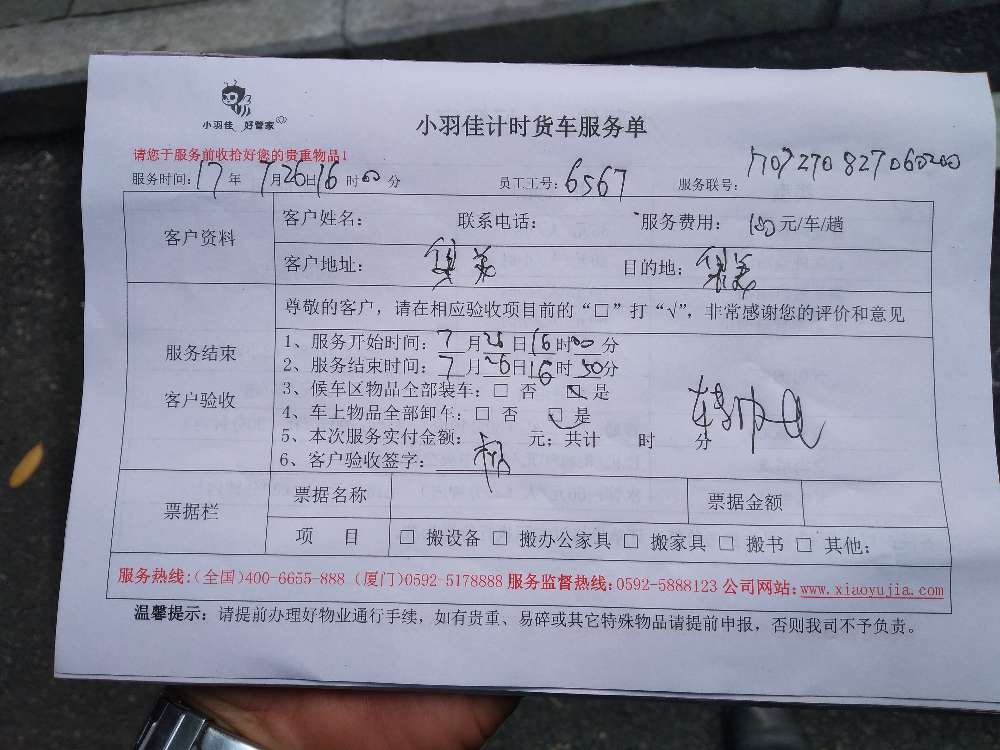 小羽佳 好管家
小羽佳计时货车服务单
请您于服务前收拾好您的贵重物品！
服务时间：17年 7月26日16时00分 员工工号：6567 服务联号：
客户资料
客户姓名： 联系电话： 服务费用：180元/车/趟
客户地址：集美 目的地：集美
服务结束
客户验收
尊敬的客户，请在相应验收项目前的“□”打“√”，非常感谢您的评价和意见
1、服务开始时间：7月26日16时00分
2、服务结束时间：7月26日16时50分
3、候车区物品全部装车：□ 否 ☑ 是
4、车上物品全部卸车：□ 否 ☑ 是
5、本次服务实付金额： 元；共计 时 分
6、客户验收签字：
票据栏
票据名称 票据金额
项 目 □ 搬设备 □ 搬办公家具 □ 搬家具 □ 搬书 □ 其他：
服务热线：(全国)400-6655-888 (厦门)0592-5178888 服务监督热线：0592-5888123 公司网站：www.xiaoyujia.com
温馨提示：请提前办理好物业通行手续，如有贵重、易碎或其它特殊物品请提前申报，否则我司不予负责。